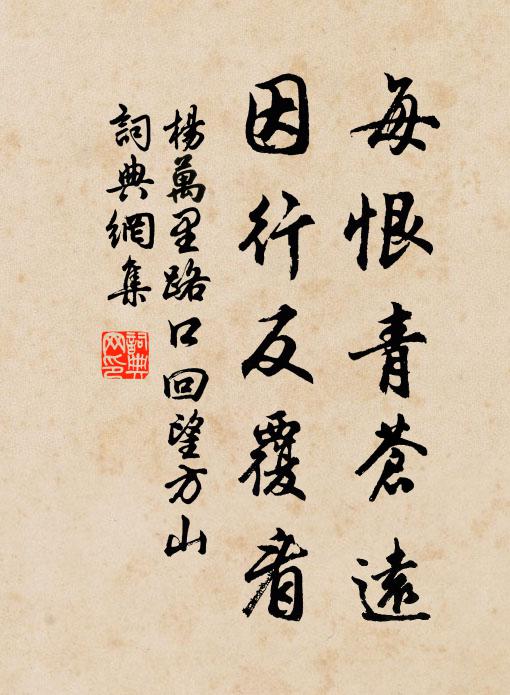 每恨青蒼遠
因行反覆看
楊萬里路口回望方山
詞典網集
詞典网印